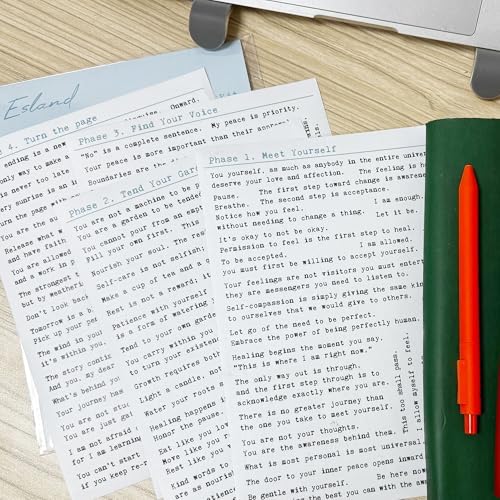 Esland
4. Turn the page
ending is a new
only way to make a
is never too late
every sunrise is an
turn the page with
You are the au
Release what
and have faith
You are allowed
and a work in p
The strongest
but by weatheri
Don't look back
Tomorrow is a b
Pick up your pe
The wind in you
it's within you.
The story contin
And you, my dear
What's behind yo
Your journey has
You are not stu
You are just ga
I am not afraid
for I am learnin
You can't start
if you keep re-r
Onward.
Phase 3. Find Your Voice
"No" is a complete sentence. My peace is priority.
Your peace is more important than their approval
Boundaries are the
Phase 2. Tend Your Gar
You are not a machine to be p
You are a garden to be tended
You cannot pour from an empt
Fill your own first. This
Nourish your soul. The res
Self-care is not selfish;
Make a cup of tea and a
Rest is not a reward; it
Patience with yourself
is a form of watering
Tend to your own garde
You carry within you
to turn your existenc
Growth requires both
Light a candle, not
Water your roots s
Healing happens
Honor the pause.
Eat like you love
Move like you
Rest like you
Kind words to
are as nourish
Phase 1. Meet Yourself
You yourself, as much as anybody in the entire univer
deserve your love and affection. The feeling is h
Pause. The first step toward change is awarene
Breathe. The second is acceptance.
Notice how you feel. I am enough.
without needing to change a thing. Let it be.
It's okay to not be okay.
Permission to feel is the first step to heal.
To be accepted, I am allowed.
you must first be willing to accept yourself.
Your feelings are not visitors you must enter
they are messengers you need to listen to.
Self-compassion is simply giving the same kin
to ourselves that we would give to others.
Let go of the need to be perfect.
Embrace the power of being perfectly human.
Healing begins the moment you say,
"This is where I am right now."
The only way out is through.
and the first step through is to
acknowledge exactly where you are.
There is no greater journey than
the one you take to meet yourself.
You are not your thoughts.
You are the awareness behind them.
What is most personal is most universal
The door to your inner peace opens inward
Be gentle with yourself. Be here now
being the best you can with the awa
This too shall pass.
I allow myself to feel.